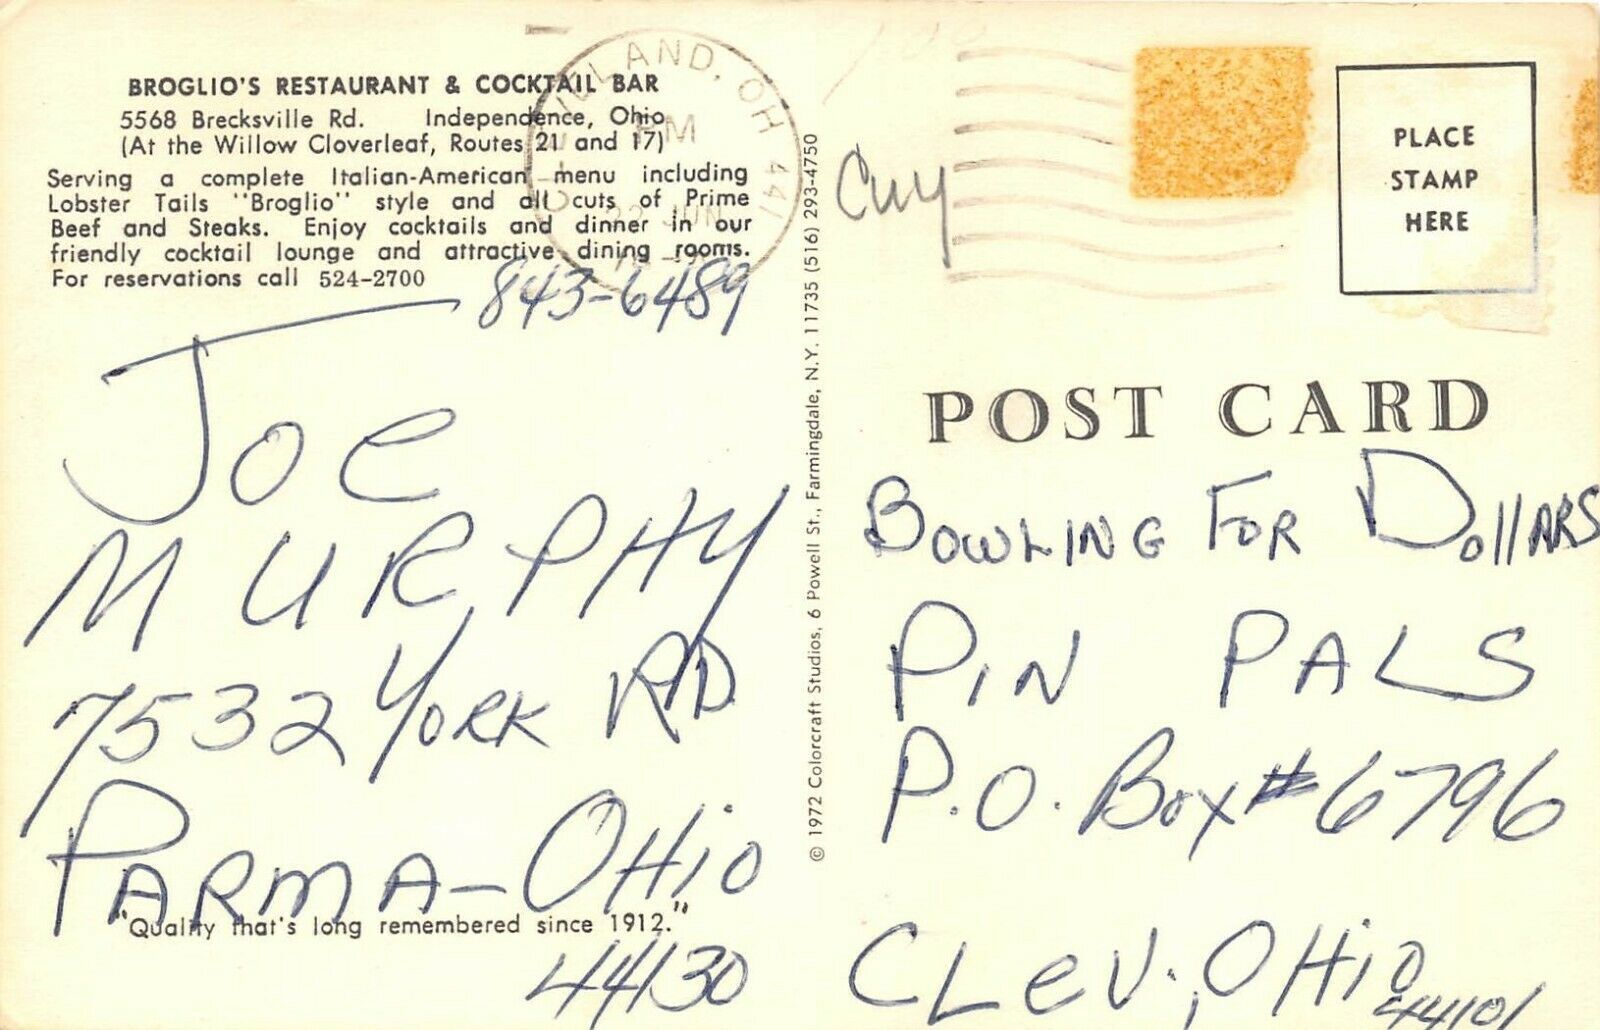 BROGLIO'S RESTAURANT & COCKTAIL BAR
5568 Brecksville Rd. Independence, Ohio
(At the Willow Cloverleaf, Routes 21 and 17)
Serving a complete Italian-American menu including
Lobster Tails "Broglio" style and all cuts of Prime
Beef and Steaks. Enjoy cocktails and dinner in our
friendly cocktail lounge and attractive dining rooms.
For reservations call 524-2700
843-6489
JOE
MURPHY
7532 YORK RD.
PARMA-OHiO
"Quality that's long remembered since 1912."
44130
CLEVELAND, OH 441
PM
22 JUN
© 1972 Colorcraft Studios, 6 Powell St., Farmingdale, N.Y. 11735 (516) 293-4750
Cuy
PLACE
STAMP
HERE
POST CARD
BOWLING FOR DollARS
PIN PALS
P.O. Box # 6796
CLEV., OHiO
44101